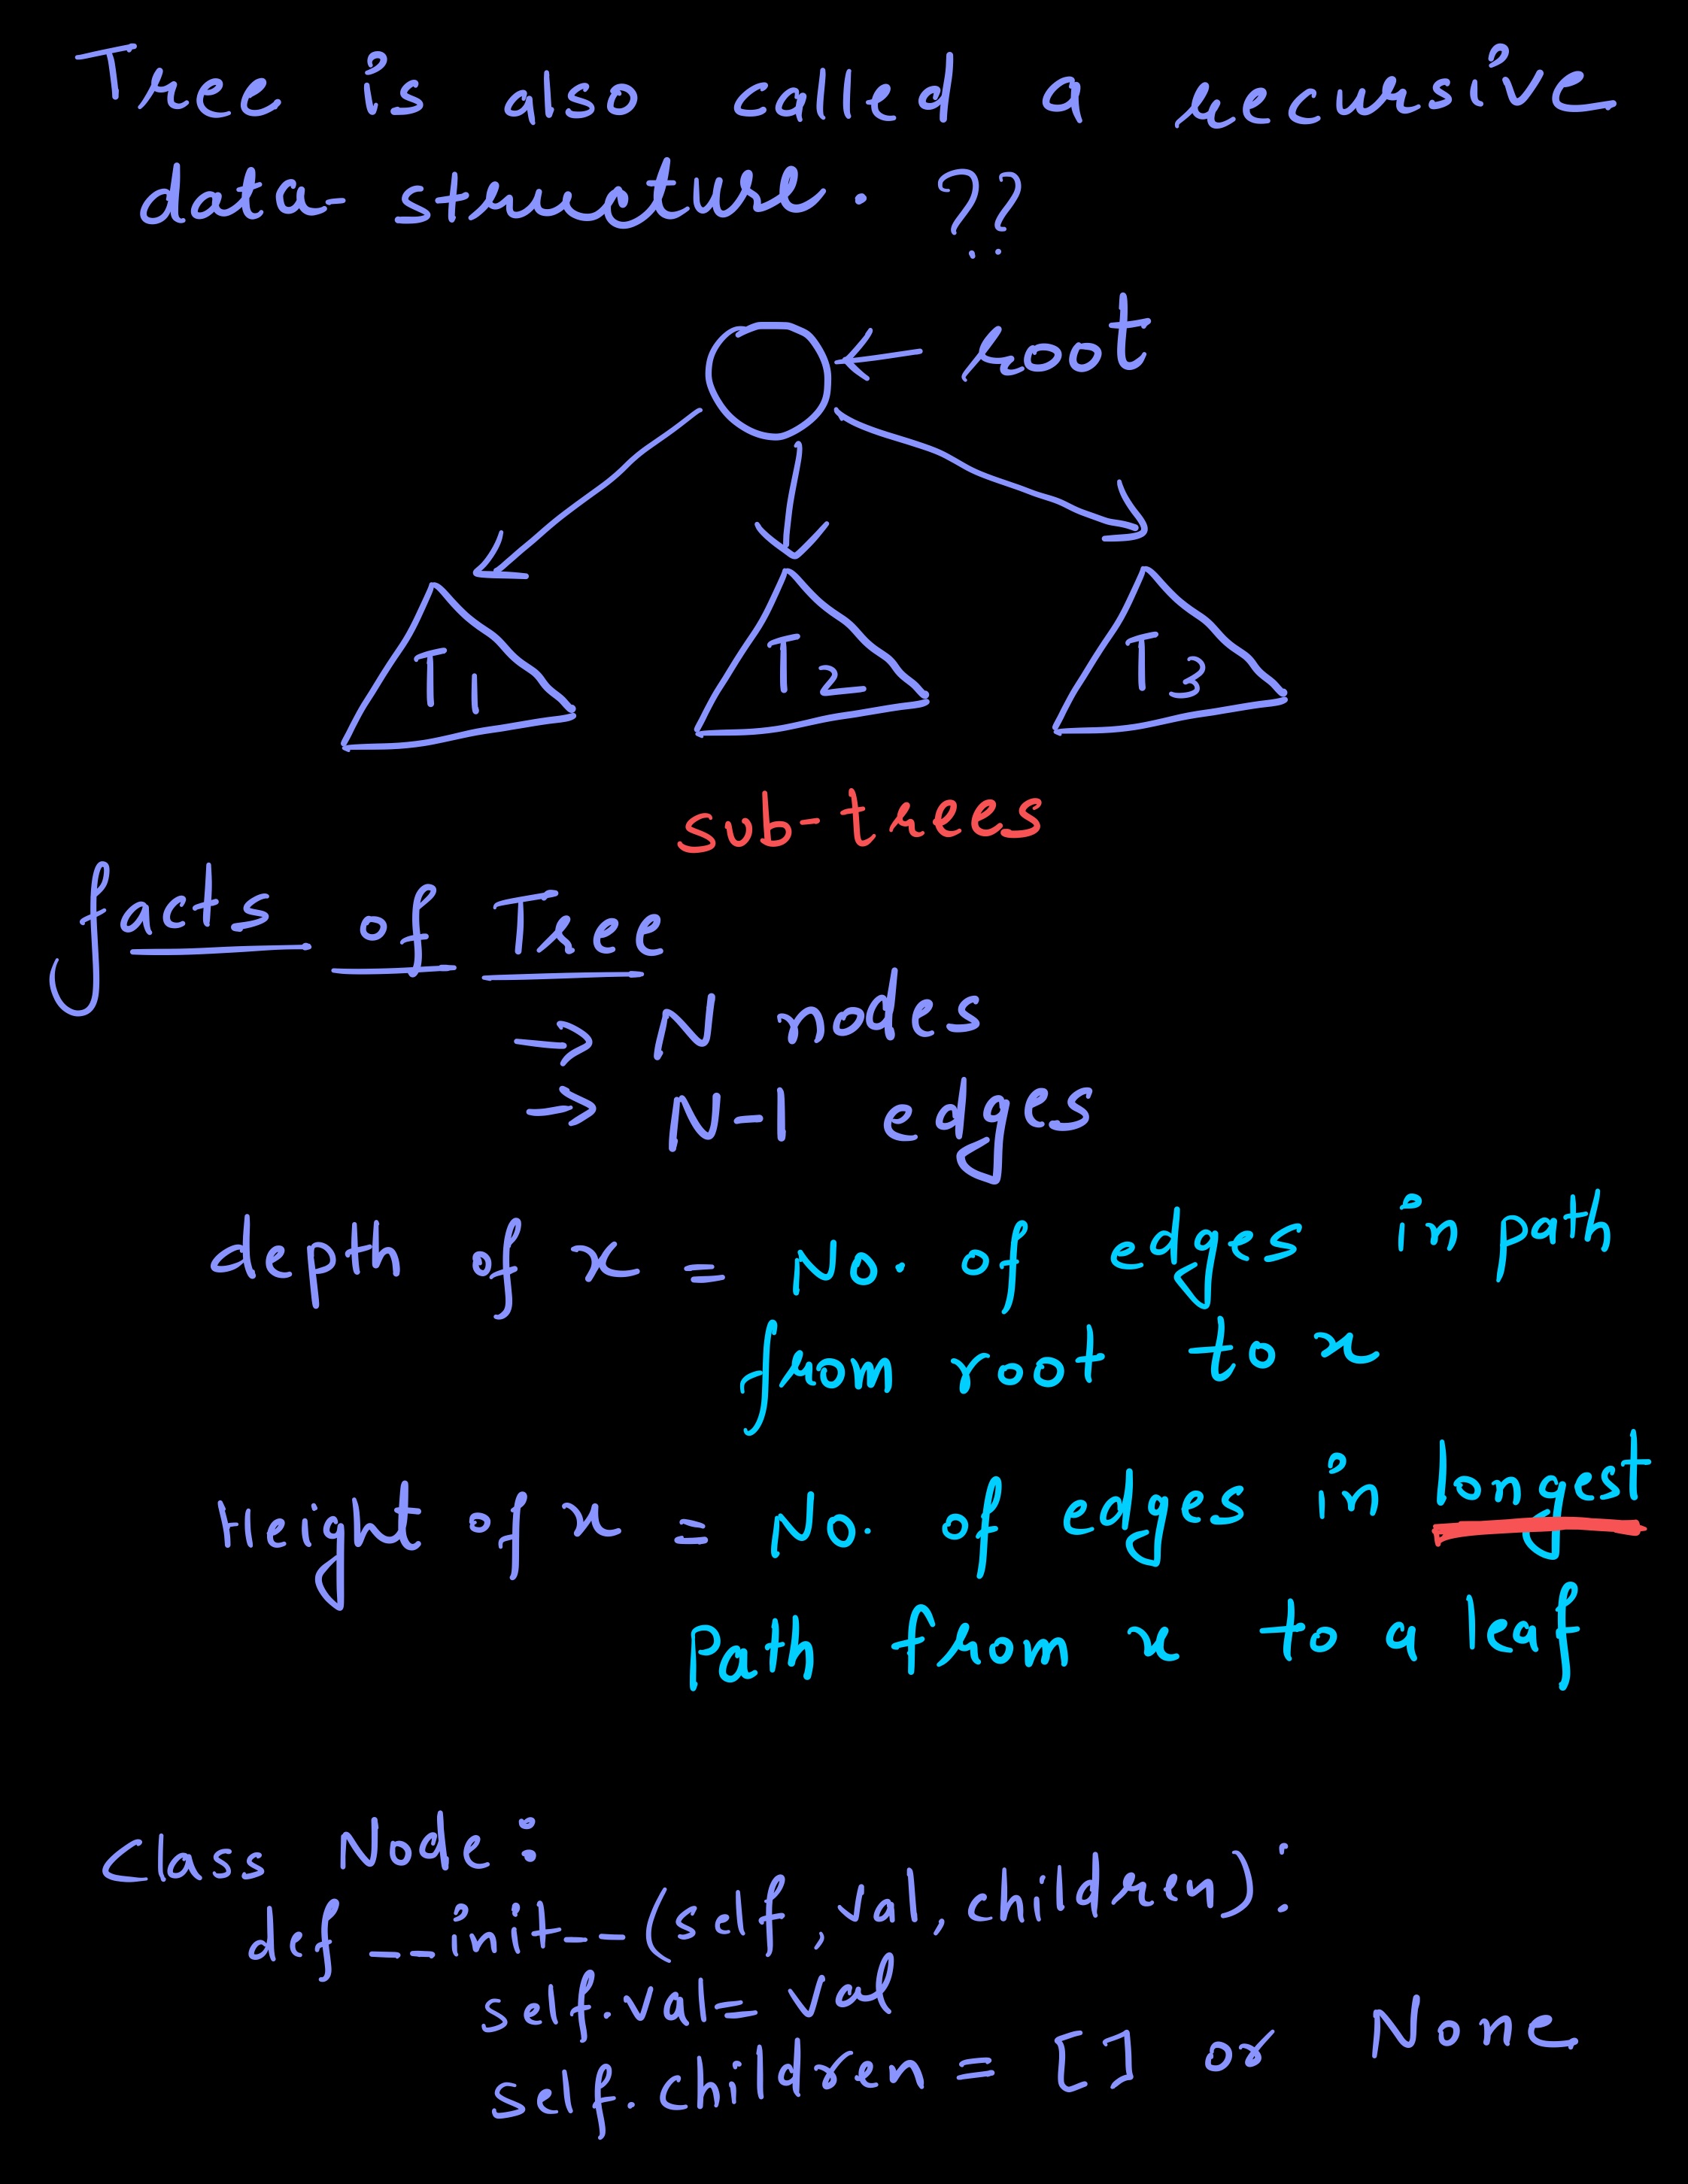 Tree is also called a recursive
data-structure. ??
root
T1 T2 T3
sub-trees
facts of Tree
→ N nodes
→ N-1 edges
depth of x = No. of edges in path
from root to x
Height of x = No. of edges in longest
Path from x to a leaf
Class Node:
def __init__(self, val, children):
self.val = val
self.children = [] or None